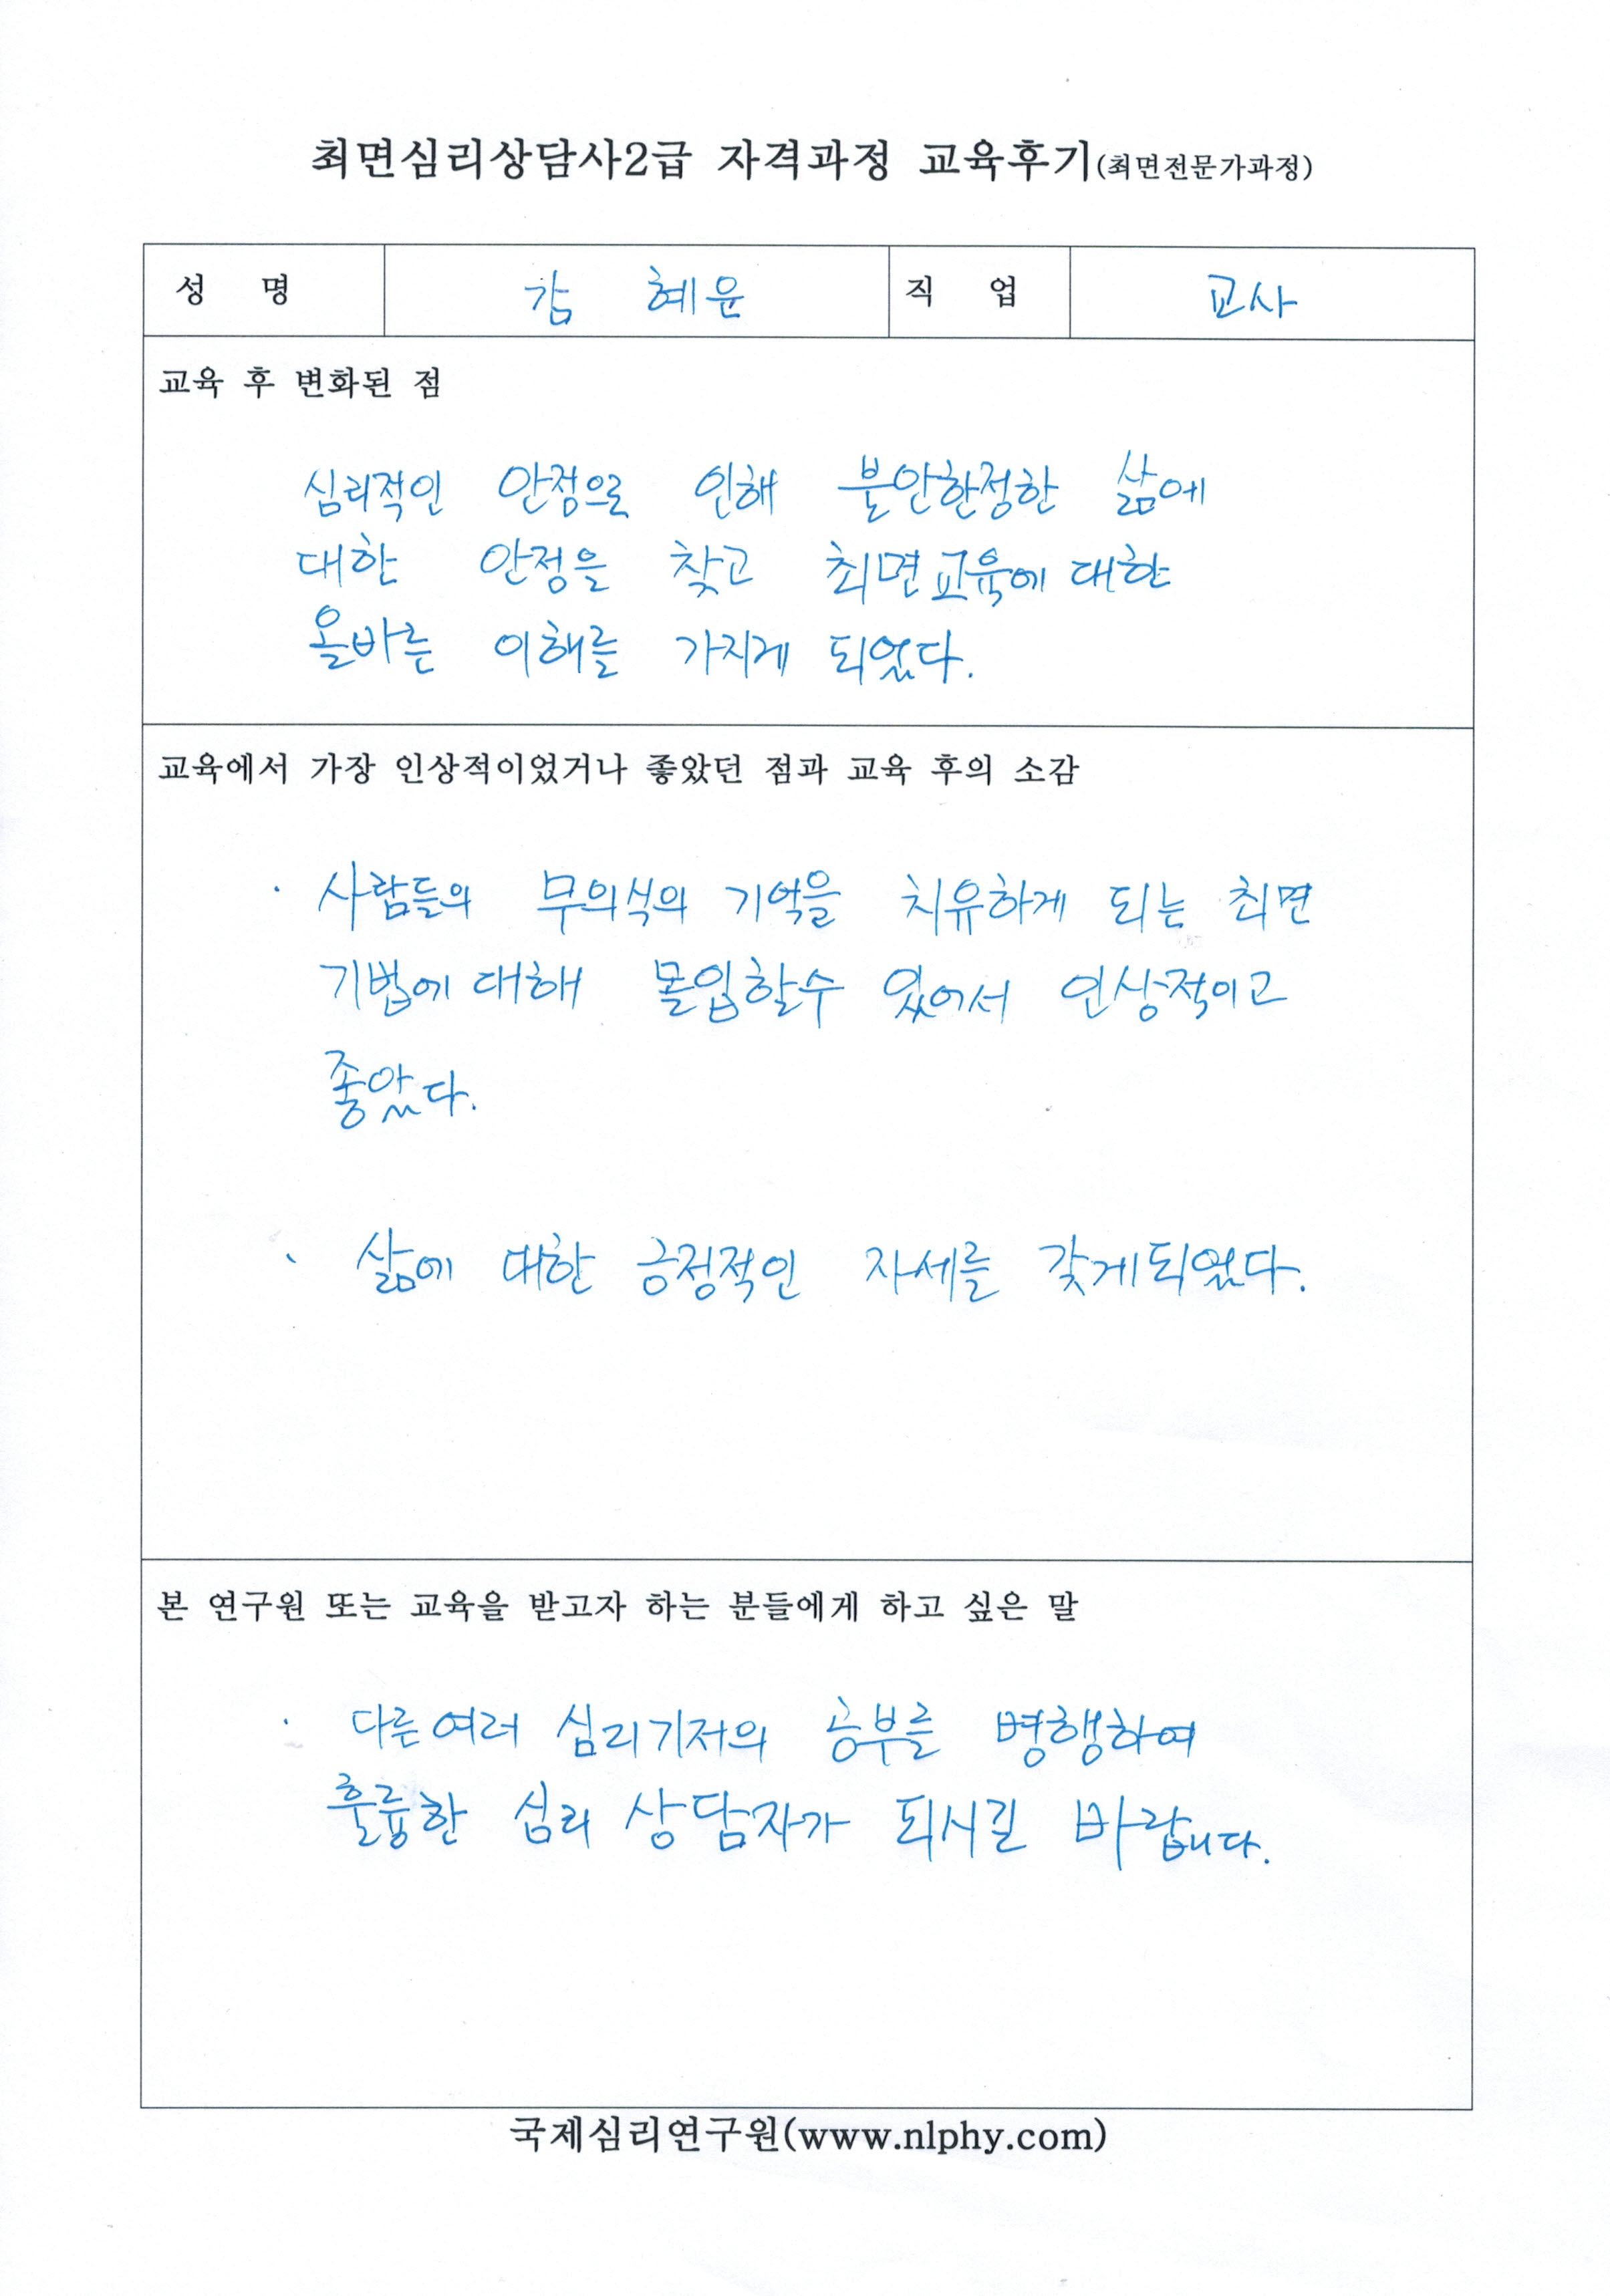 최면심리상담사2급 자격과정 교육후기(최면전문가과정)
성 명 감 혜윤 직 업 교사
교육 후 변화된 점
심리적인 안정으로 인해 불안한정한 삶에
대한 안정을 찾고 최면교육에 대한
올바른 이해를 가지게 되었다.
교육에서 가장 인상적이었거나 좋았던 점과 교육 후의 소감
· 사람들의 무의식의 기억을 치유하게 되는 최면
기법에 대해 몰입할수 있어서 인상적이고
좋았다.
· 삶에 대한 긍정적인 자세를 갖게되었다.
본 연구원 또는 교육을 받고자 하는 분들에게 하고 싶은 말
· 다른여러 심리기저의 공부를 병행하여
훌륭한 심리 상담자가 되시길 바랍니다.
국제심리연구원(www.nlphy.com)